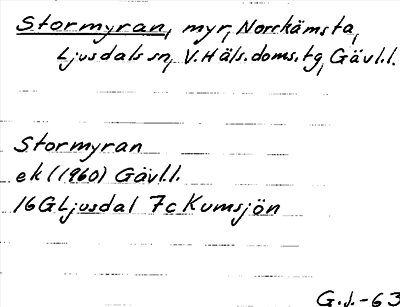 Stormyran, myr, Norrkämsta,
Ljusdals sn, V. Häls. doms. tg, Gävl.l.
Stormyran
ek (1960) Gävl.l.
16G Ljusdal 7c Kumsjön
G.J.-63